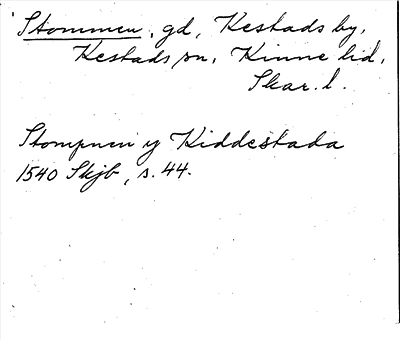 Stommen, gd, Kestads by,
Kestads sn, Kinne hd,
Skar. l.
Stompnen y Kiddestada
1540 Skjb, s. 44.